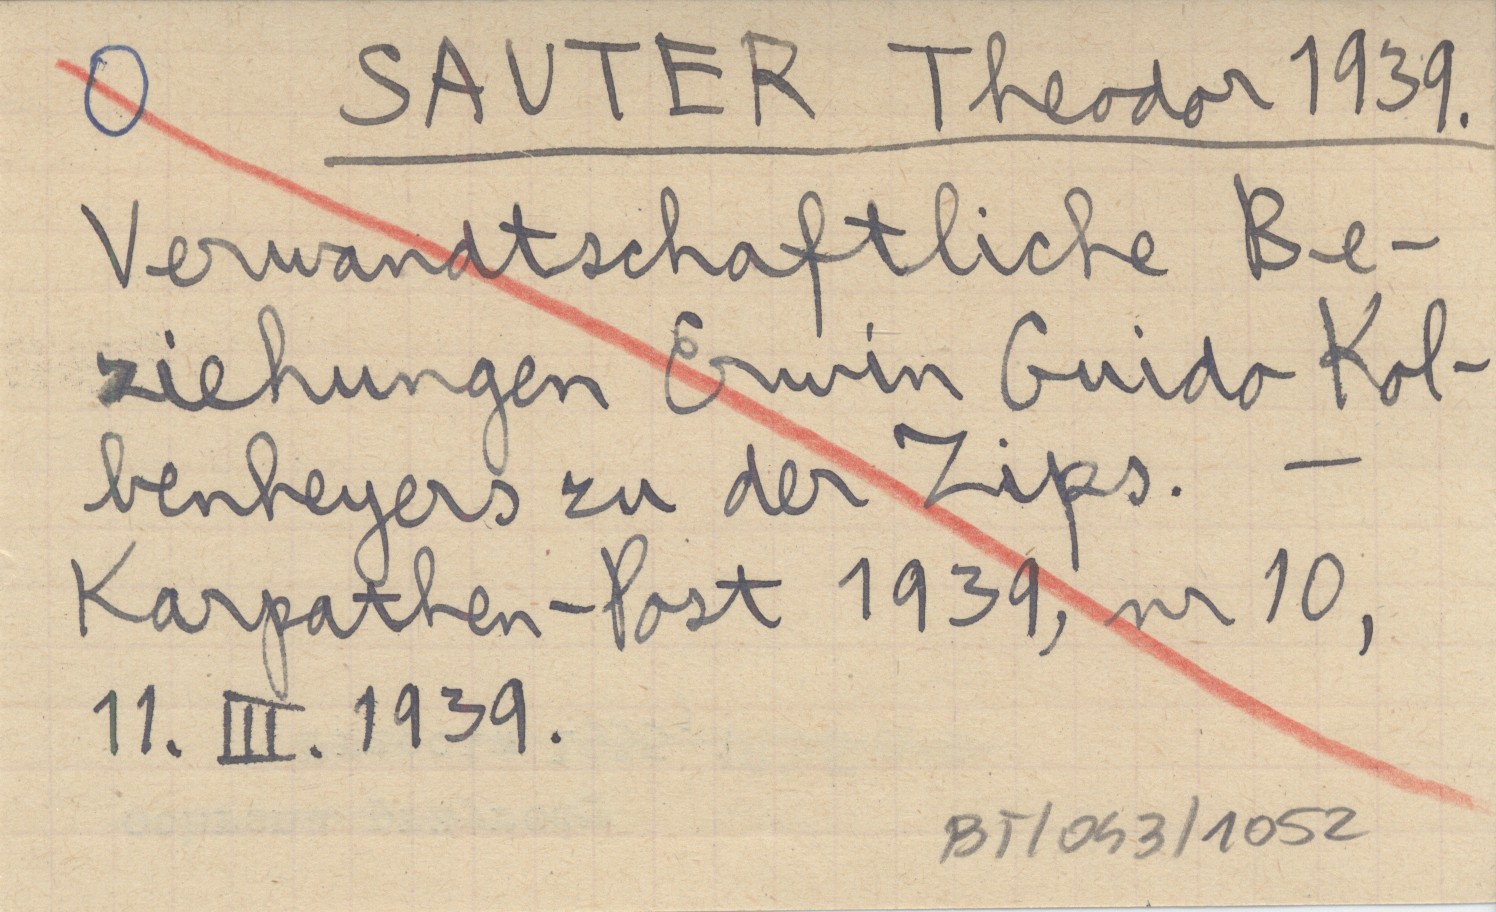 O SAUTER Theodor 1939.
Verwandtschaftliche Be-
ziehungen Erwin Guido Kol-
benheyers zu der Zips. —
Karpathen-Post 1939, nr 10,
11. III. 1939.
BT/043/1052